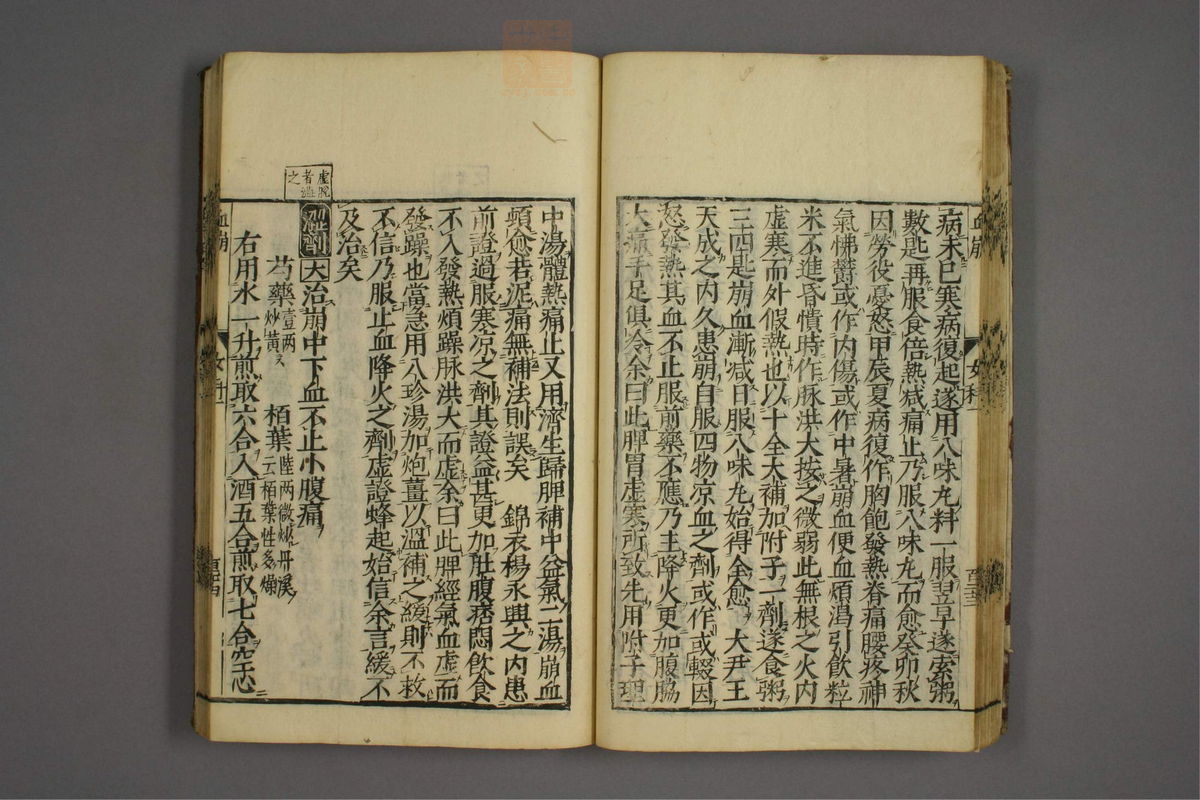 病未已寒病復起遂用八味丸料一服翌早遂索粥
數匙再服食倍熱減痛止乃服八味丸而愈癸卯秋
因勞役憂怒甲辰夏病復作胸飽發熱脊痛腰疼神
氣怫鬱或作内傷或作中暑崩血便血煩渴引飲粒
米不進昏憒時作脉洪大按之微弱此無根之火内
虚寒而外假熱也以十全大補加附子一劑遂食粥
三四匙崩血漸减日服八味丸始得全愈 大尹王
天成之内久患崩自服四物凉血之劑或作或輟因
怒發熱其血不止服前藥不應乃主降火更加腹脇
大痛手足俱冷余曰此脾胃虚寒所致先用附子理
血崩
女科
中湯體熱痛止又用濟生歸脾補中益氣二湯崩血
頓愈若泥痛無補法則誤矣 錦衣楊永興之内患
前證過服寒凉之劑其證益甚更加肚腹痞悶飲食
不入發熱煩躁脉洪大而虚余曰此脾經氣血虚而
發躁也當急用八珍湯加炮薑以温補之緩則不救
不信乃服止血降火之劑虚證蜂起始信余言緩不
及治矣
虚脱者澁之
大治崩中下血不止小腹痛
芍藥壹两炒黄 栢葉陸两微炒丹溪云栢葉性多燥
右用水一升煎取六合入酒五合煎取七合空心
血崩
女科